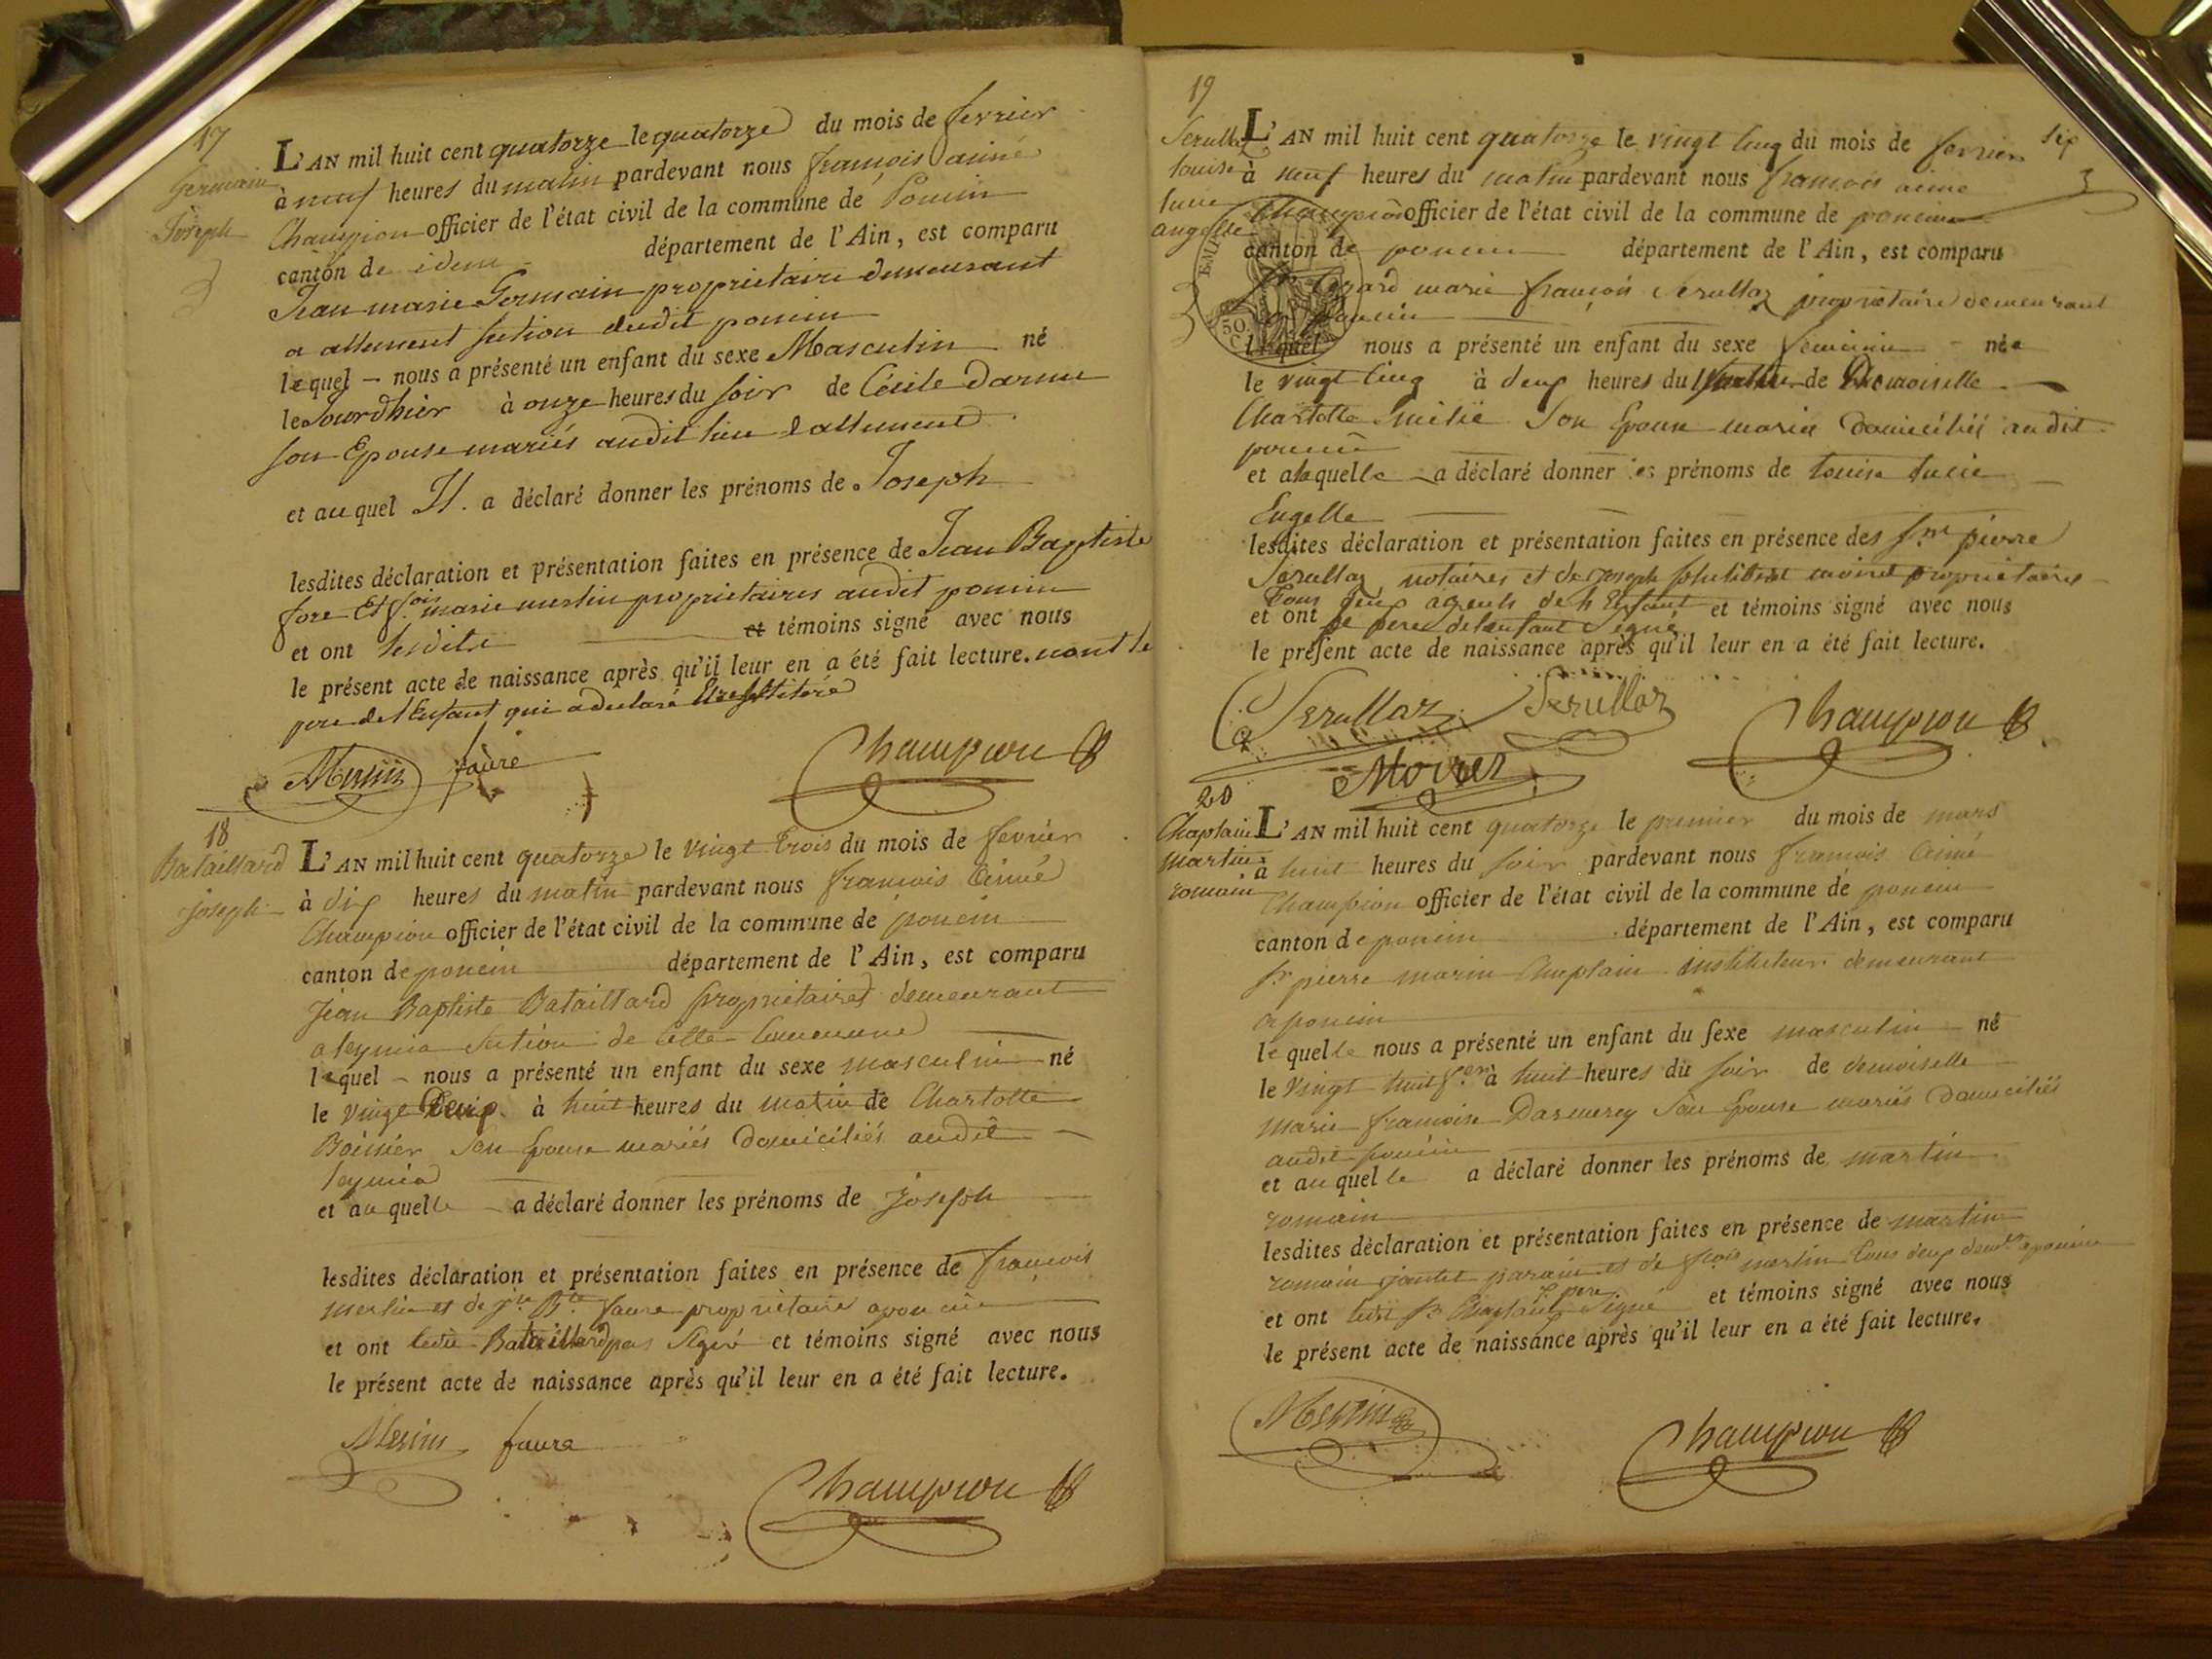 17
Germain
Joseph
L'AN mil huit cent quatorze le quatorze du mois de fevrier
à neuf heures du matin pardevant nous françois aimé
Champion officier de l'état civil de la commune de Poncin
canton de idem département de l'Ain, est comparu
Jean marie Germain proprietaire demeurant
a allement section dudit poncin
lequel – nous a présenté un enfant du sexe Masculin né
le jourdhier à onze heures du soir de Cécile
son Epouse mariés audit lieu d'allement
et au quel Il. a déclaré donner les prénoms de Joseph
lesdites déclaration et présentation faites en présence de Jean Baptiste
fore Et fois marie merlin proprietaires audit poncin
et ont lesdits et témoins signé avec nous
le présent acte de naissance après qu'il leur en a été fait lecture. non le
pere de l'Enfant qui a declaré
faure
Champion
18
Bataillard
joseph
L'AN mil huit cent quatorze le vingt trois du mois de fevrier
à dix heures du matin pardevant nous francois Aimé
Champion officier de l'état civil de la commune de poncin
canton de poncin département de l'Ain, est comparu
Jean Baptiste Bataillard proprietaire demeurant
a leymia section de cette commune
lequel – nous a présenté un enfant du sexe masculin né
le vingt Deux à huit heures du matin de Charlotte
son Epouse mariés domiciliés audit
leymia
et au quelle a déclaré donner les prénoms de joseph
lesdites déclaration et présentation faites en présence de françois
merlin et de jn Bte faure proprietaire a poncin
et ont ledit Bataillard pas signé et témoins signé avec nous
le présent acte de naissance après qu'il leur en a été fait lecture.
faure
Champion
19
Serullaz
louise
lucie
angelle
six
L'AN mil huit cent quatorze le vingt cinq du mois de fevrier
à neuf heures du matin pardevant nous françois aimé
Champion officier de l'état civil de la commune de poncin
canton de poncin département de l'Ain, est comparu
marie françois Serullaz proprietaire demeurant
a poncin
50
lequel nous a présenté un enfant du sexe feminin née
le vingt cinq à deux heures du de Demoiselle
Charlotte Emilie son Epouse mariés domiciliés audit
poncin
et a laquelle a déclaré donner les prénoms de louise lucie
Engelle
lesdites déclaration et présentation faites en présence des pierre
Serullaz notaires et de joseph philibert moiret proprietaires
tous deux ageuls de l'Enfant
et ont le pere de l'enfant signé et témoins signé avec nous
le présent acte de naissance après qu'il leur en a été fait lecture.
Serullaz Serullaz
Champion
Moiret
20
Chaplain
martin
romain
L'AN mil huit cent quatorze le premier du mois de mars
à huit heures du soir pardevant nous francois Aimé
Champion officier de l'état civil de la commune de poncin
canton de poncin département de l'Ain, est comparu
sr pierre marin Chaplain instituteur demeurant
a poncin
le quelle nous a présenté un enfant du sexe masculin né
le vingt huit à huit heures du soir de demoiselle
marie francoise Darmerey son Epouse mariés domiciliés
audit poncin
et au quelle a déclaré donner les prénoms de martin
romain
lesdites déclaration et présentation faites en présence de martin
romain jantet parain et de fcois merlin tous deux a poncin
et ont ledit sr Chaplain le pere signé et témoins signé avec nous
le présent acte de naissance après qu'il leur en a été fait lecture.
Champion